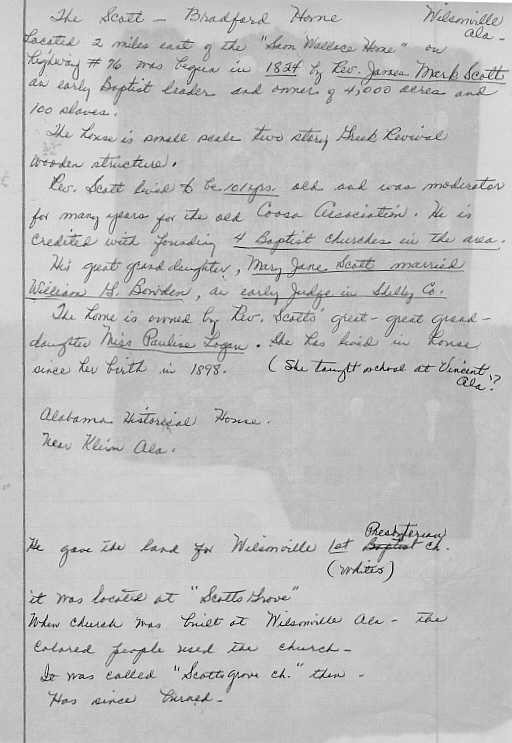 The Scott - Bradford Home Wilsonville
Ala -
Located 2 miles east of the "Leon Wallace Home" on
highway # 76 was begun in 1824 by Rev. James Mark Scott
an early Baptist leader and owner of 4,000 acres and
100 slaves.
The house is small scale two story Greek Revival
wooden structure.
Rev. Scott lived to be 101 yrs. old and was moderator
for many years for the old Coosa Association. He is
credited with founding 4 Baptist churches in the area.
His great grand daughter, Mary Jane Scott married
William G. Bowden, an early Judge in Shelby Co.
The home is owned by Rev. Scotts' great-great grand-
daughter Miss Pauline Logan. She has lived in house
since her birth in 1898. (She taught school at Vincent
Ala?
Alabama Historical House.
Near Klein Ala.
Presbyterian
He gave the land for Wilsonville 1st Baptist ch.
(Whites)
it was located at "Scotts Grove"
When church was built at Wilsonville Ala - the
colored people used the church -
It was called "Scotts grove ch." then -
Has since burned -